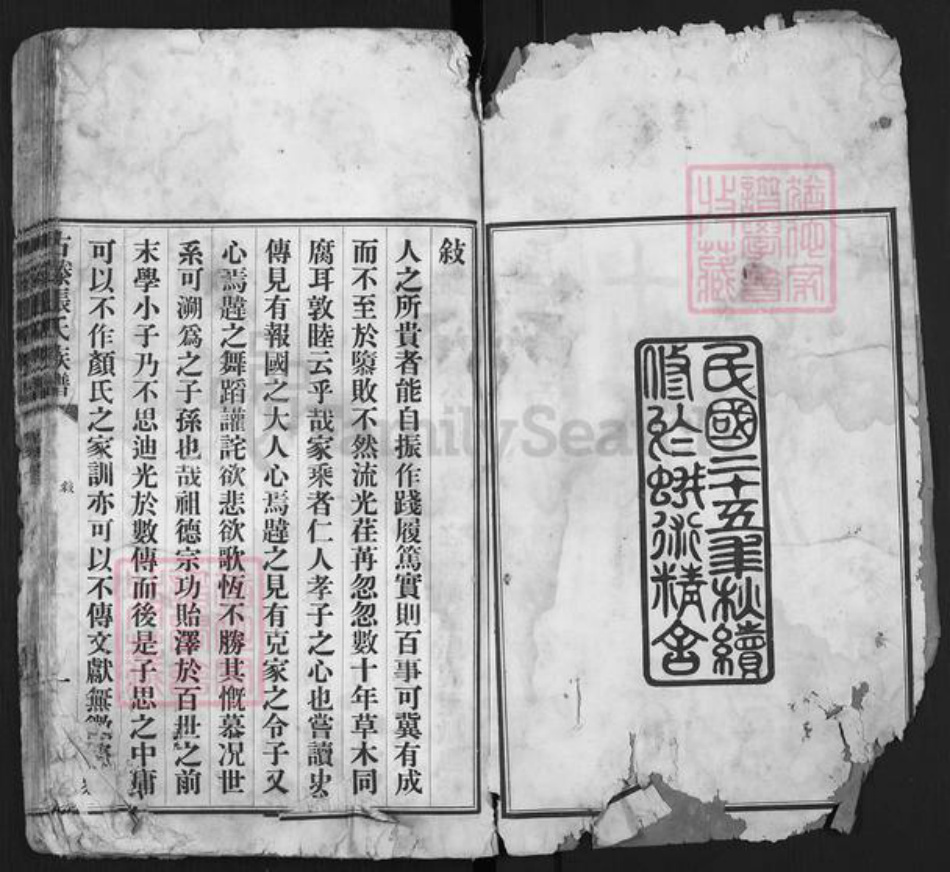 民國二十五年秋續
修於蛾術精舍
敍
人之所貴者能自振作踐履篤實則百事可冀有成
而不至於隳敗不然流光荏苒忽忽數十年草木同
腐耳敦睦云乎哉家乘者仁人孝子之心也嘗讀史
傳見有報國之大人心焉韙之見有克家之令子又
心焉韙之舞蹈讙詫欲悲欲歌恆不勝其慨慕况世
系可溯爲之子孫也哉祖德宗功貽澤於百世之前
末學小子乃不思迪光於數傳而後是子思之中庸
可以不作顏氏之家訓亦可以不傳文獻無徵
張氏族譜
敍
一
FamilySearch